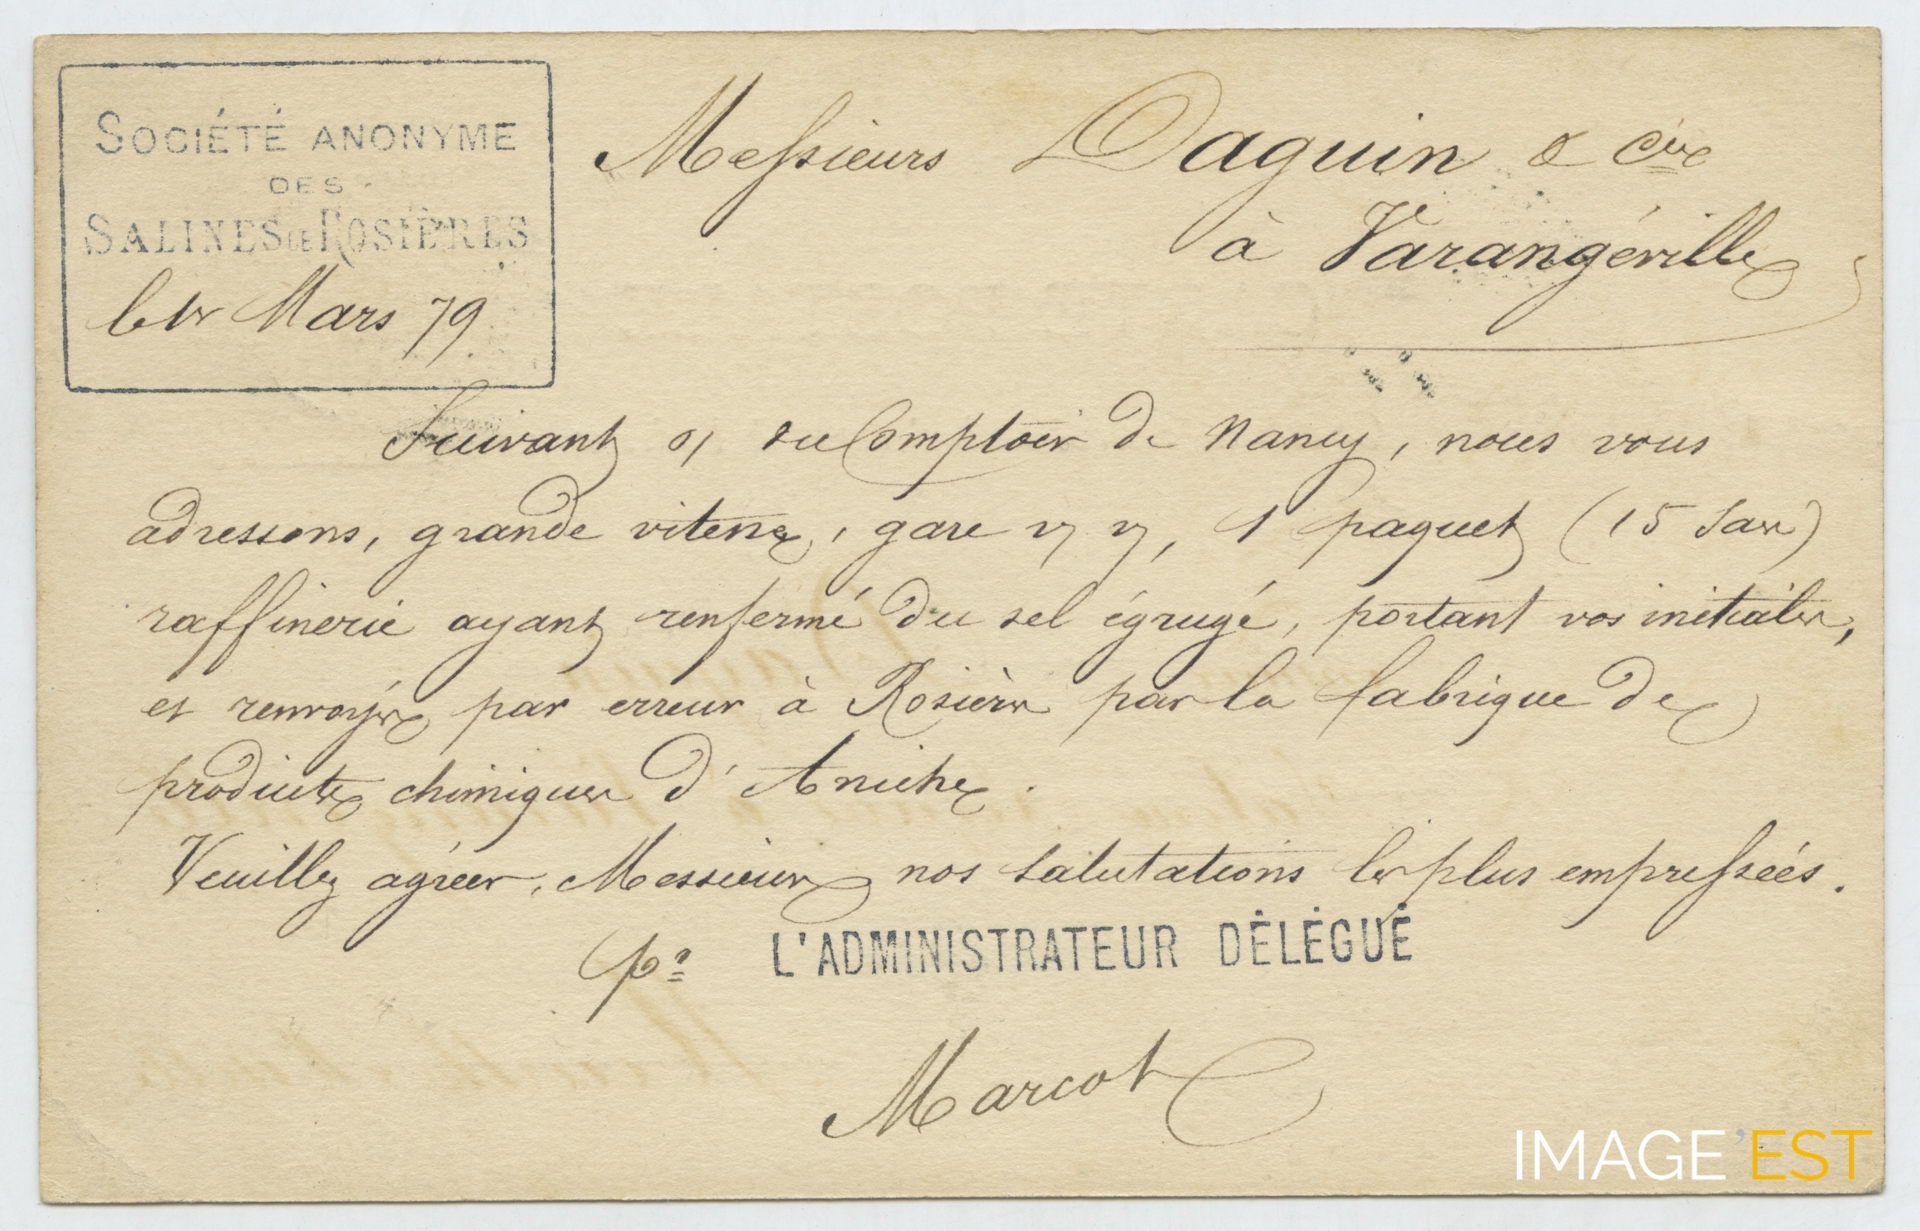 SOCIÉTÉ ANONYME
DES
SALINES DE ROSIÈRES
le 1er Mars 79
Messieurs Daguin & Cie
à Varangéville
Suivant o/ du Comptoir de Nancy, nous vous
adressons, grande vitesse, gare V/ V/, 1 paquet (15 sacs)
raffinerie ayant renfermé du sel égrugé, portant vos initiales,
et renvoyés par erreur à Rosières par la fabrique de
produits chimiques d'Aniche.
Veuillez agréer, Messieurs nos salutations les plus empressées.
po L'ADMINISTRATEUR DÉLÉGUÉ
Marcot
IMAGE'EST